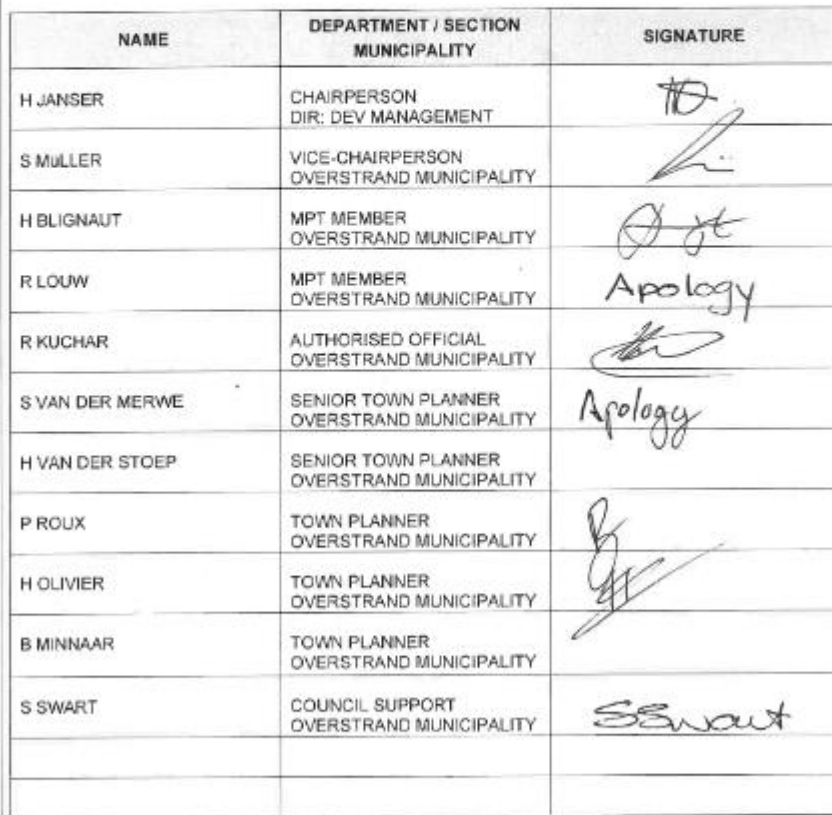 NAME
DEPARTMENT / SECTION
MUNICIPALITY
SIGNATURE
H JANSER
CHAIRPERSON
DIR: DEV MANAGEMENT
S MüLLER
VICE-CHAIRPERSON
OVERSTRAND MUNICIPALITY
H BLIGNAUT
MPT MEMBER
OVERSTRAND MUNICIPALITY
R LOUW
MPT MEMBER
OVERSTRAND MUNICIPALITY
Apology
R KUCHAR
AUTHORISED OFFICIAL
OVERSTRAND MUNICIPALITY
S VAN DER MERWE
SENIOR TOWN PLANNER
OVERSTRAND MUNICIPALITY
Apology
H VAN DER STOEP
SENIOR TOWN PLANNER
OVERSTRAND MUNICIPALITY
P ROUX
TOWN PLANNER
OVERSTRAND MUNICIPALITY
H OLIVIER
TOWN PLANNER
OVERSTRAND MUNICIPALITY
B MINNAAR
TOWN PLANNER
OVERSTRAND MUNICIPALITY
S SWART
COUNCIL SUPPORT
OVERSTRAND MUNICIPALITY
SSwart